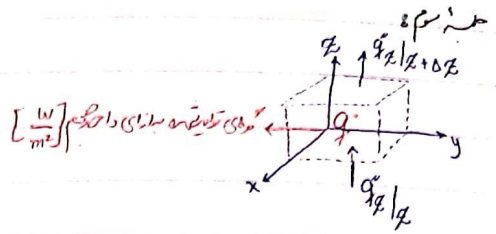 جلسه سوم:
z
q̇″z|z+Δz
[W/m²] گرمای تولید شده به ازای واحد حجم
q̇
y
x
q̇″z|z